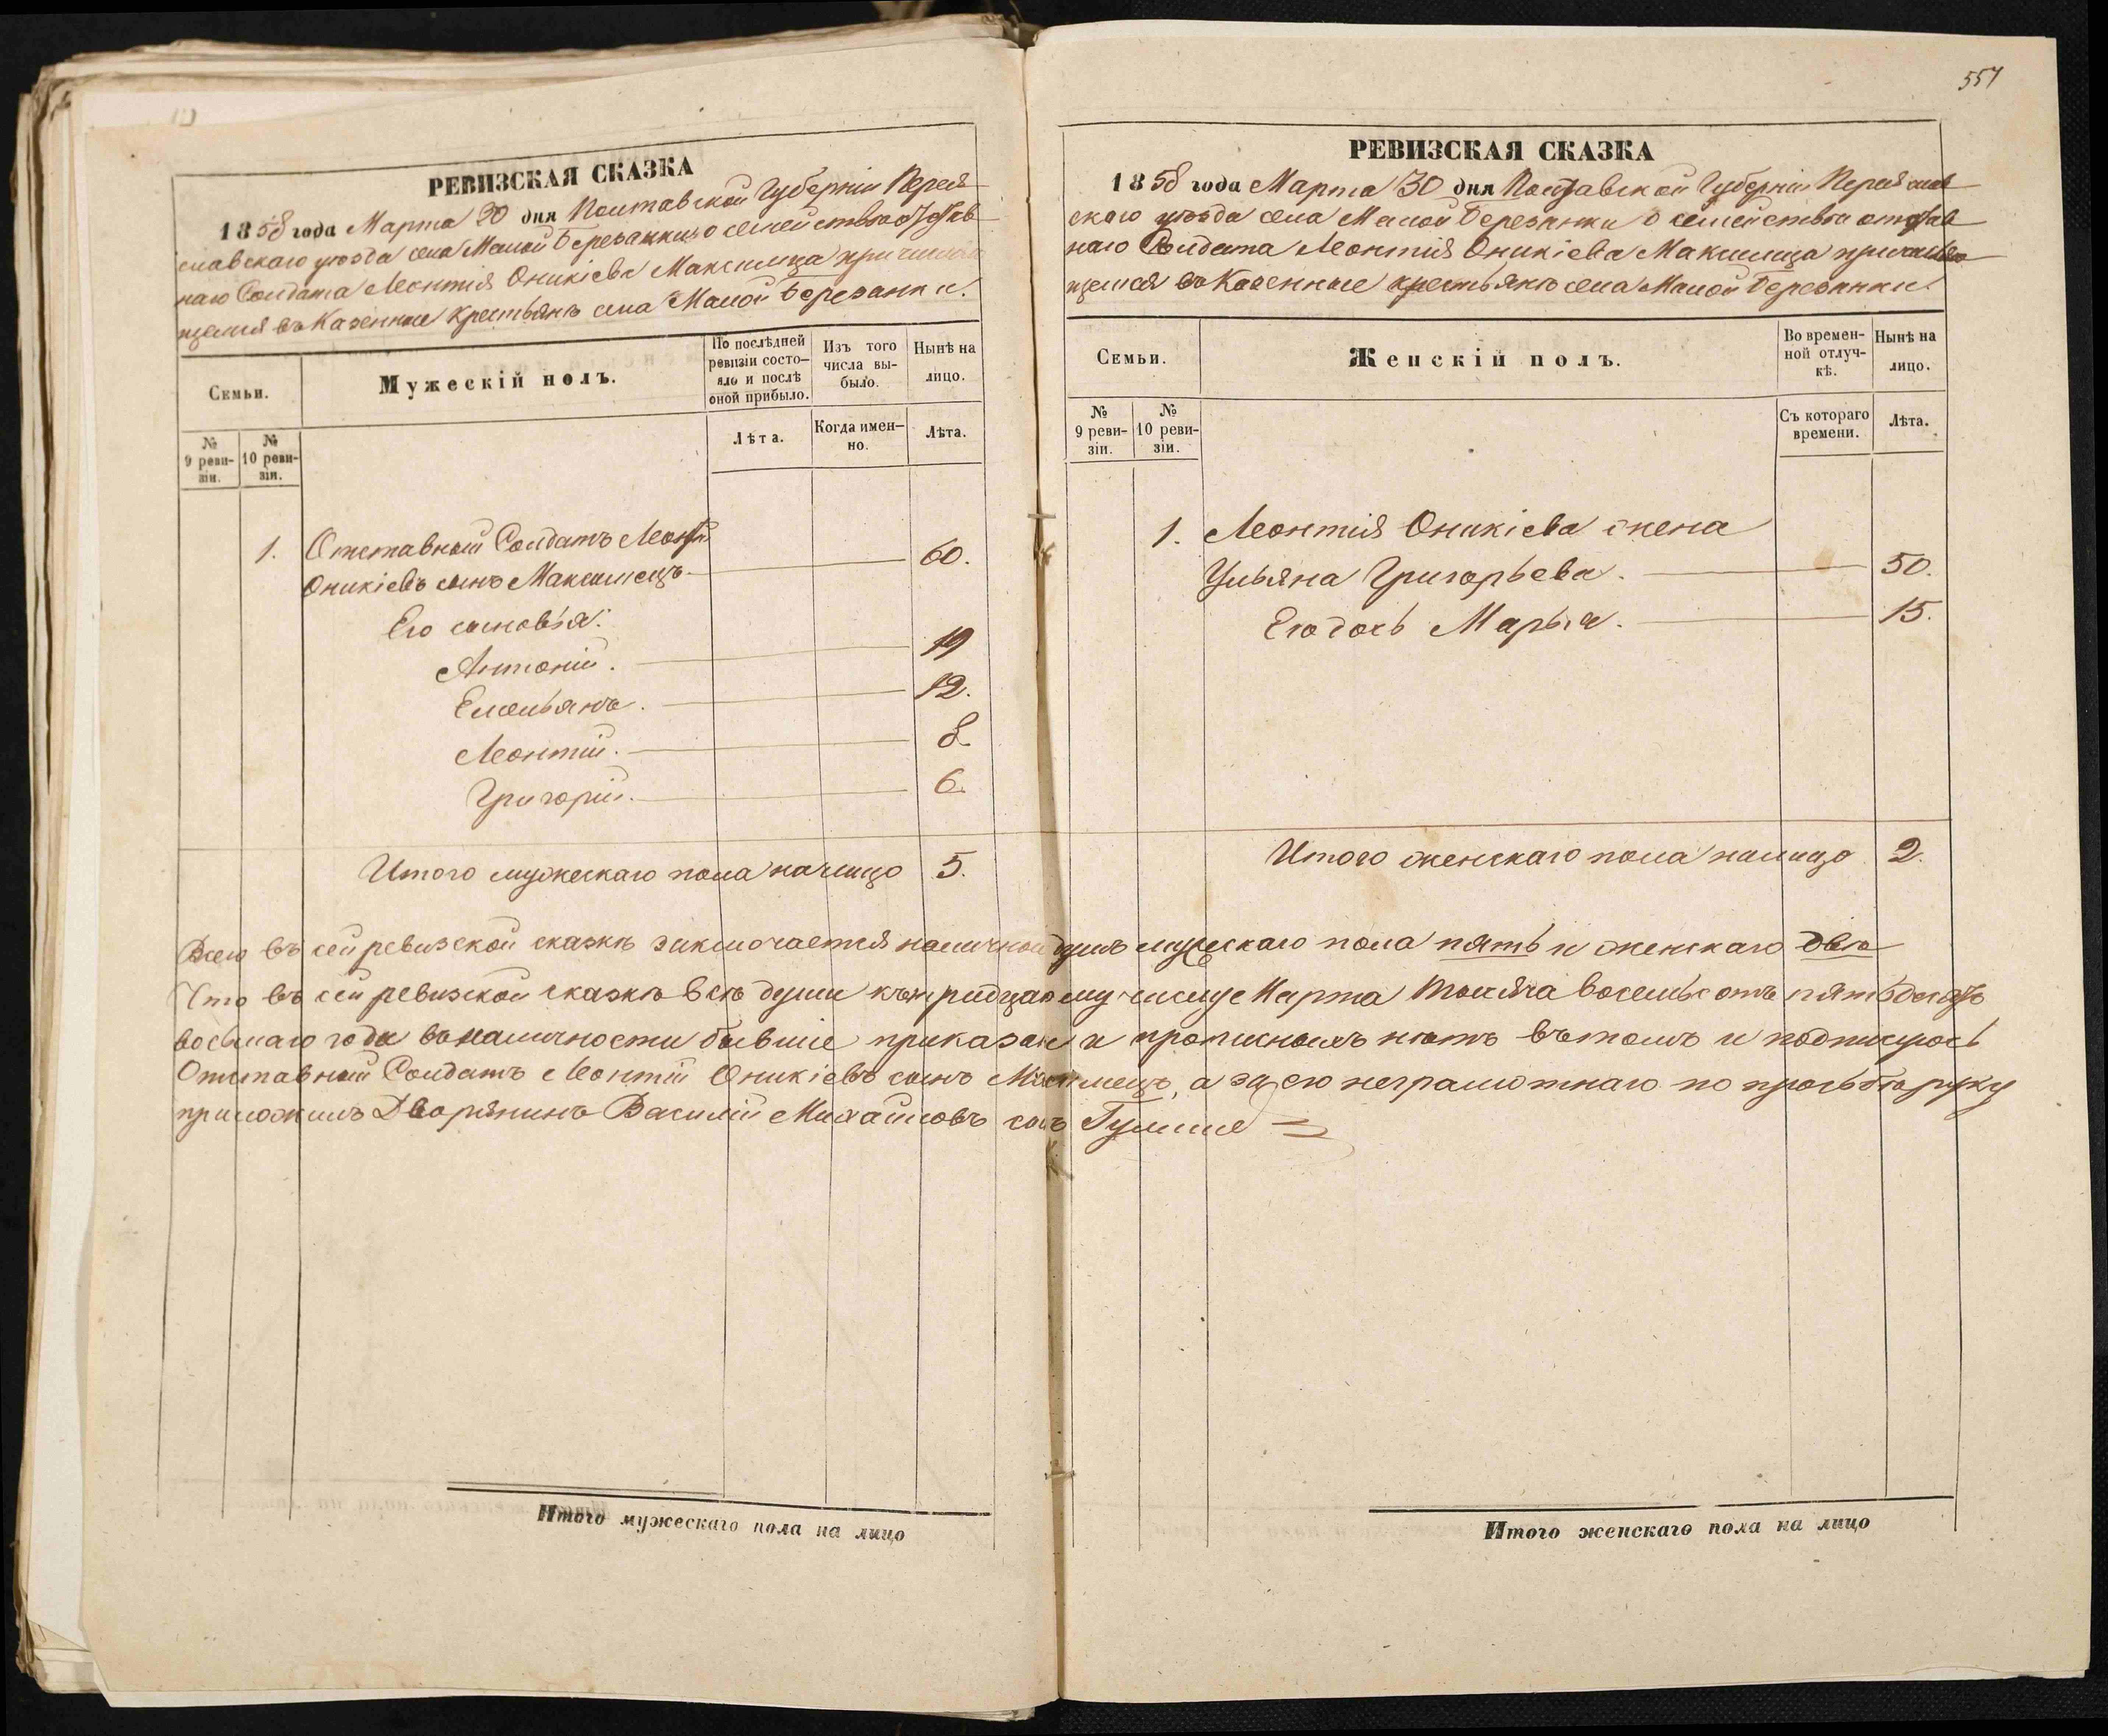 РЕВИЗСКАЯ СКАЗКА
1858 года Марта 30 дня Полтавской Губерніи Перея-
славскаго уѣзда села Малой Березанки о семействѣ отстав-
наго Солдата Леонтія Оникіева Максимца причисляю-
щемся въ Казенные крестьянъ села Малой Березанки.
Семьи.
Мужескій полъ.
По послѣдней ревизіи состо-яло и послѣ оной прибыло.
Изъ того числа вы-было.
Нынѣ на лицо.
№ 9 реви-зіи.
№ 10 реви-зіи.
Лѣта.
Когда имен-но.
Лѣта.
1. Отставной Солдатъ Леонтій
Оникіевъ сынъ Максимецъ 60.
Его сыновья:
Антоній. 19
Емельянъ. 12.
Леонтій. 8.
Григорій. 6.
Итого мужескаго пола налицо 5.
557
РЕВИЗСКАЯ СКАЗКА
1858 года Марта 30 дня Полтавской Губерніи Переяслав-
скаго уѣзда села Малой Березанки о семействѣ отстав-
наго Солдата Леонтія Оникіева Максимца причисляю-
щемся въ Казенные крестьянъ села Малой Березанки.
Семьи.
Женскій полъ.
Во времен-ной отлуч-кѣ.
Нынѣ на лицо.
№ 9 реви-зіи.
№ 10 реви-зіи.
Съ котораго времени.
Лѣта.
1. Леонтія Оникіева жена
Ульяна Григорьева. 50.
Его дочь Марья. 15.
Итого женскаго пола налицо 2.
Всего въ сей ревизской сказкѣ заключается наличной душъ мужескаго пола пять и женскаго двѣ
Что въ сей ревизской сказкѣ всѣ души къ тридцатому числу Марта тысяча восемьсотъ пятьдесятъ
восьмаго года въ наличности бывшіе приказаны и прописныхъ нѣтъ въ томъ и подписуюсь
Отставной Солдатъ Леонтій Оникіевъ сынъ Максимецъ, а за его неграмотнаго по просьбѣ руку
приложилъ Дворянинъ Василій Михайловъ сынъ
Итого мужескаго пола на лицо
Итого женскаго пола на лицо